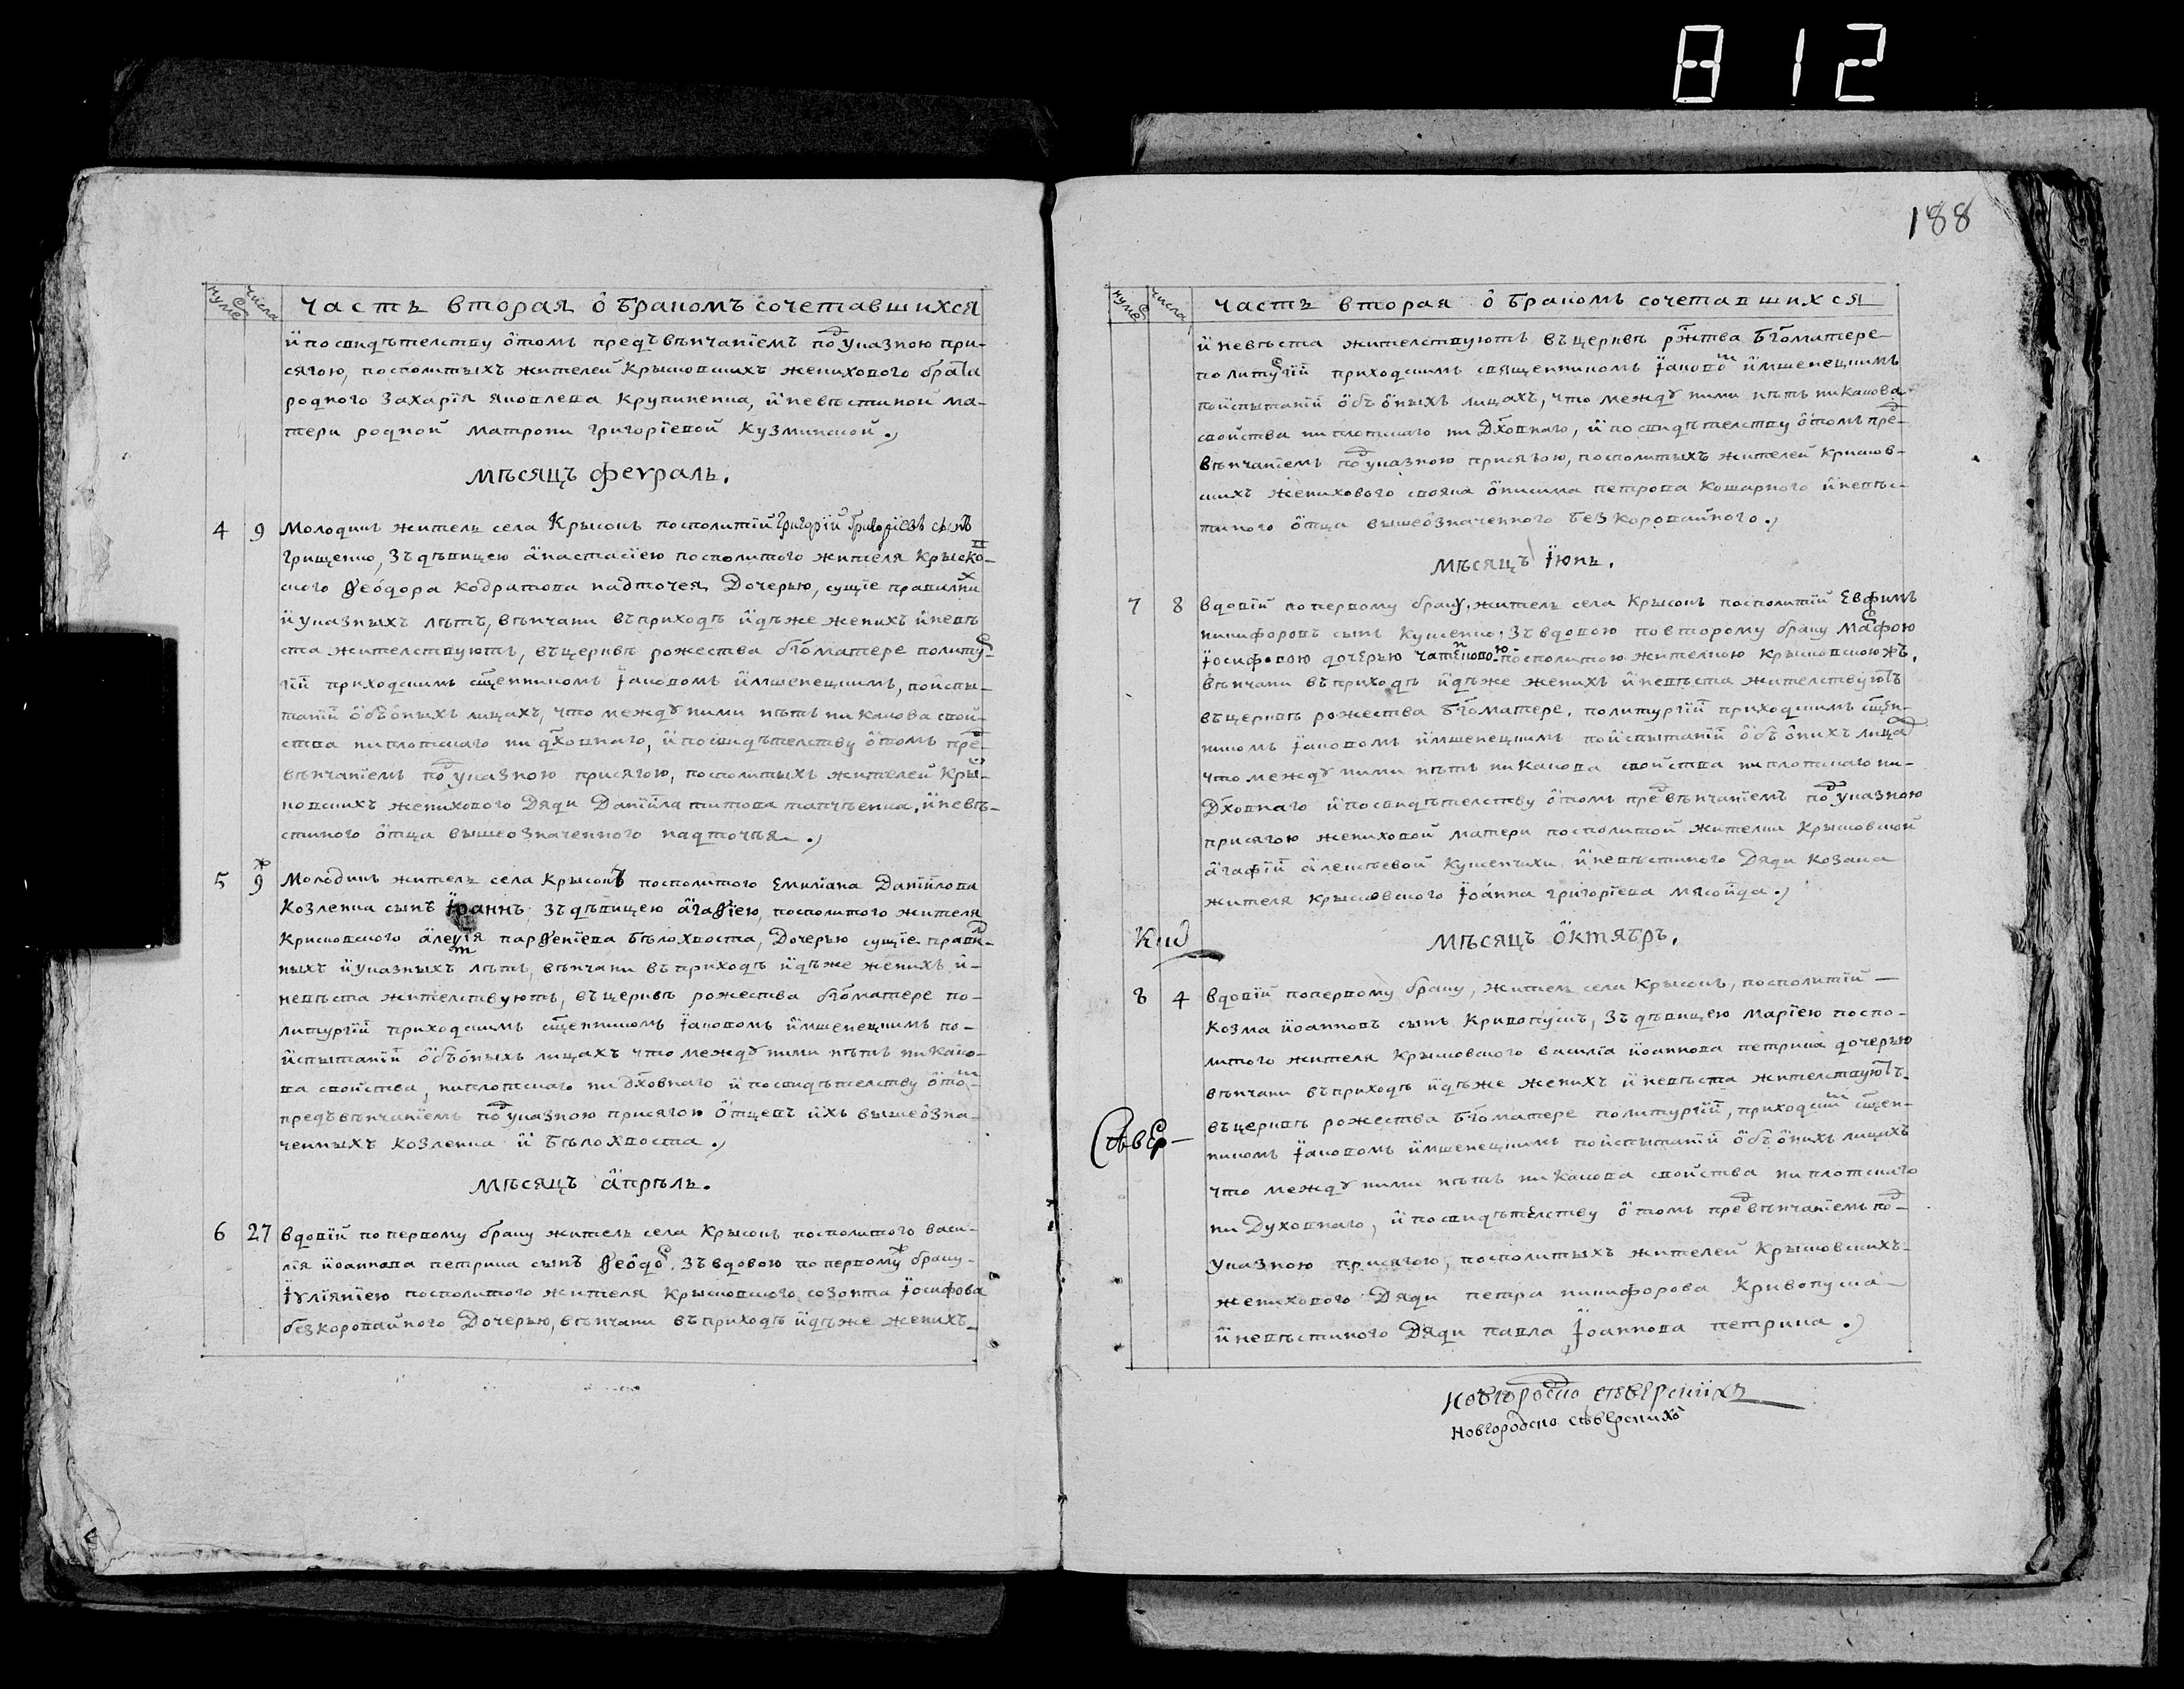 812
188
нумер числа
часть вторая о бракомъ сочетавшихся
и по свидѣтелству о томъ предъ вѣнчаніемъ под указною при-
сягою, посполитыхъ жителей Крысковскихъ женихового брата
родного Захарія Яковлева Крупиненка, и невѣстиной ма-
тери родной Матрони Григоріевой Кузминской.
мѣсяцъ февраль.
4 9 Молодикъ житель села Крысокъ посполитій Григорій Григоріевъ сынъ
Грищенко, зъ дѣвицею Анастасіею посполитого жителя Крыско-
ского Ѳеодора Кодратова Надточея Дочерью, сущіе правилних
и указныхъ лѣтъ, вѣнчани въ приходѣ идѣже женихъ и невѣ
ста жителствуютъ, въ церквѣ рожества бгоматере по литур-
гіи приходскимъ сщенникомъ Іаковомъ Имшенецкимъ, по испы-
таніи объ оныхъ лицахъ, что между ними нѣтъ никакова свой-
ства ни плотскаго ни дховнаго, и по свидѣтелству о томъ пред-
вѣнчаніемъ под указною присягою, посполитыхъ жителей Кры-
ковскихъ женихового Дяди Даніила Титова Татченка, и невѣ-
стиного отца вышеозначенного Надточѣя.
5 9 Молодикъ житель села Крысокъ посполитого Емиліана Даніилова
Козленка сынъ Іоаннъ зъ дѣвицею Агаѳіею, посполитого жителя
Крисковского Алеѵія Парѳеніева Бѣлохвоста, Дочерью сущіе правил-
ныхъ и указныхъ лѣтъ, вѣнчани въ приходѣ идѣже женихъ и-
невѣста жителствуютъ, въ церквѣ рожества бгоматере по-
литургіи приходскимъ сщенникомъ Іаковомъ Имшенецкимъ по-
испытаніи объ оныхъ лицахъ что между ними нѣтъ никако-
ва свойства, ни плотскаго ни дховнаго и по свидѣтелству о том-
предъ вѣнчаніемъ под указною присягою отцевъ ихъ вышеозна-
ченныхъ Козленка и Бѣлохвоста.
мѣсяцъ апрѣль.
6 27 вдовій по первому браку житель села Крысокъ посполитого Васи-
лія Иоаннова Петрика сынъ Ѳеодор. зъ вдовою по первому браку-
Іуліяніею посполитого жителя Крысковского Созонта Іосифова
Безкоровайного Дочерью, вѣнчани въ приходѣ идѣже женихъ-
нумер числа
часть вторая о бракомъ сочетавшихся
и невѣста жителствуютъ въ церквѣ ржтва Бгоматере
по литургіи приходскимъ священникомъ Іаковом Имшенецкимъ
по испытаніи объ оныхъ лицахъ, что между ними нѣтъ никакова-
свойства ни плотскаго ни Дховнаго, и по свидѣтелству о томъ пред-
вѣнчаніемъ под указною присягою, посполитыхъ жителей Крисков-
скихъ женихового свояка Онисима Петрова Кошарного и невѣс-
тиного отца вышеозначенного Безкоровайного.
мѣсяцъ Іюнь.
7 8 вдовій по первому браку, житель села Крысокъ посполитій Евфимъ
Никифоровъ сынъ Куценко, зъ вдовою по второму браку Марфою
Іосифовою дочерью посполитою жителкою Крысковскою жъ,
вѣнчани въ приходѣ идѣже женихъ и невѣста жителствуютъ
въ церквѣ рожества Бгоматере, по литургіи приходскимъ сщен-
никомъ Іаковомъ Имшенецкимъ по испытаніи объ онихъ лицах
что между ними нѣтъ никакова свойства ни плотскаго ни-
Дховнаго и по свидѣтелству о томъ пред вѣнчаніемъ под указною
присягою жениховой матери посполитой жителки Крысковской
Агафіи Алексѣевой Куценчихи и невѣстиного Дяди козака
жителя Крысковского Іоанна Григоріева Мясоида.
Кид
мѣсяцъ октябрь.
8 4 вдовій по первому браку, житель села Крысокъ, посполитій —
Козма Иоанновъ сынъ Кривопускъ, зъ дѣвицею Маріею поспо-
литого жителя Крысковского Василія Иоаннова Петрика дочерью
вѣнчани въ приходѣ идѣже женихъ и невѣста жителствуютъ-
въ церквѣ рожества Бгоматере по литургіи, приходским сщен-
Сѣвер-
никомъ Іаковомъ Имшенецкимъ по испытаніи объ онихъ лицахъ
что между ними нѣтъ никакова свойства ни плотскаго
ни Духовнаго, и по свидѣтелству о томъ пред вѣнчаніемъ под-
указною присягою, посполитыхъ жителей Крысковскихъ-
женихового Дяди Петра Никифорова Кривопуска-
и невѣстиного Дяди Павла Іоаннова Петрика.
Новгородско Сѣверскихъ
Новгородско Сѣверскихъ